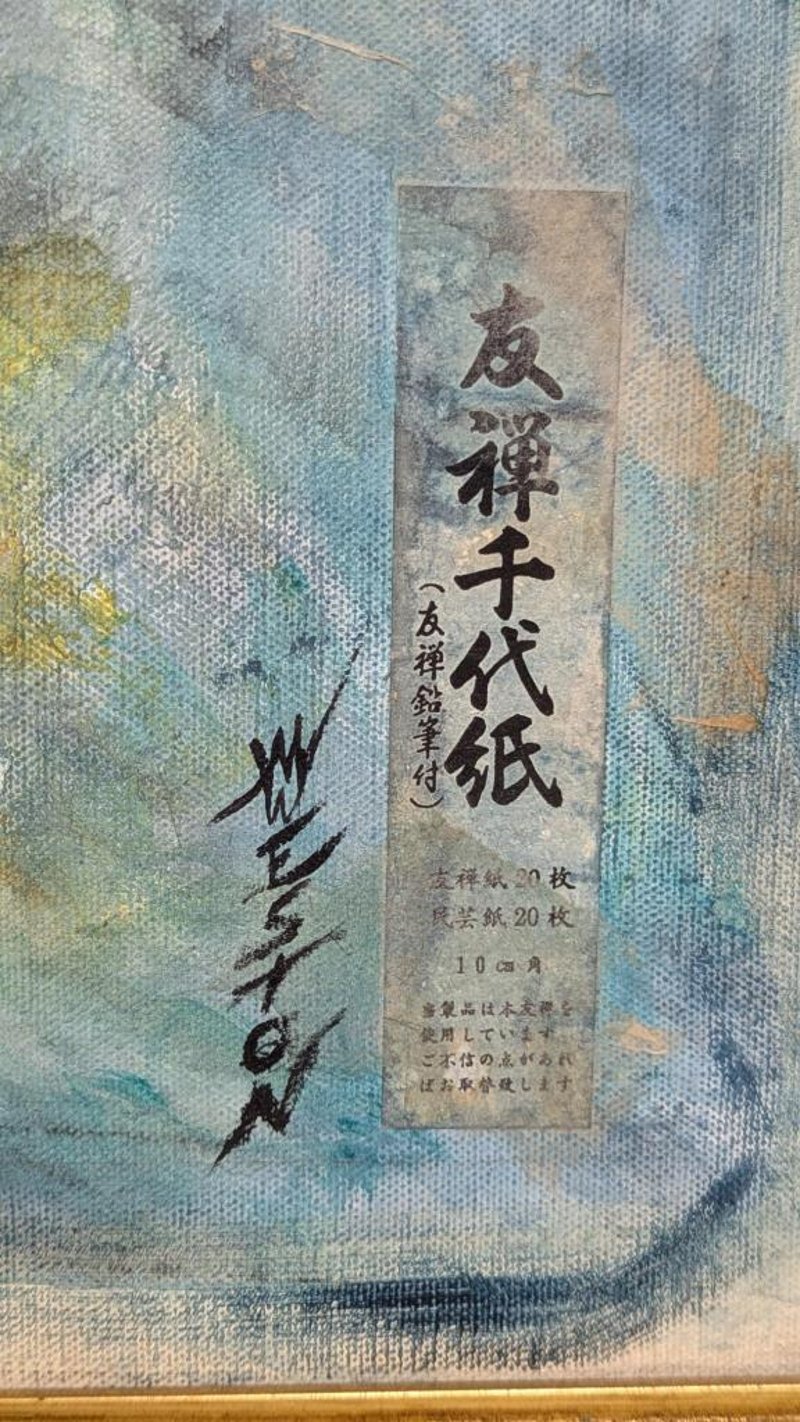 友禅千代紙
（友禅鉛筆付）
友禅紙20枚
民芸紙20枚
10㎝角
当製品は本友禅を
使用しています
ご不信の点があれ
ばお取替致します
WESTON